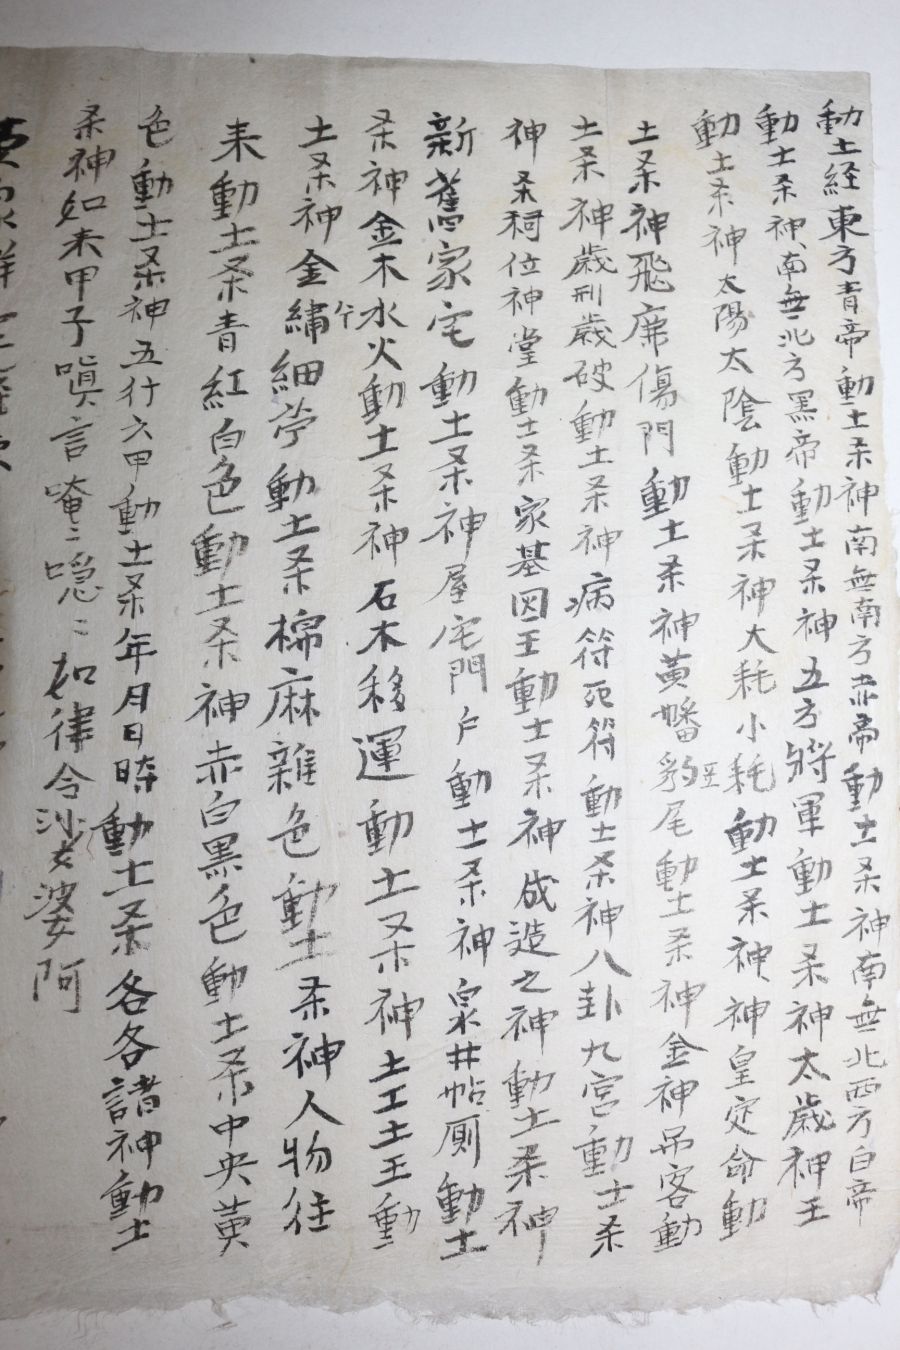 動土経東方青帝動土杀神南無南方赤帝動土杀神南無北西方白帝
動土杀神南無北方黑帝動土杀神五方將軍動土杀神太歲神王
動土杀神太陽太陰動土杀神大耗小耗動土杀神神皇定命動
土杀神飛廉傷門動土杀神黃幡豹尾動土杀神金神吊客動
土杀神歲刑歲破動土杀神病符死符動土杀神八卦九宮動土杀
神杀祠位神堂動土杀家基因王動土杀神成造之神動土杀神
新舊家宅動土杀神屋宅門户動土杀神泉井帖厠動土
杀神金木水火動土杀神石木移運動土杀神土工土王動
土杀神金繡細苧動土杀棉麻雜色動土杀神人物往
来動土杀青紅白色動土杀神赤白黑色動土杀中央黄
色動土杀神五行六甲動土杀年月日時動土杀各各諸神動土
杀神如来甲子嗔言唵〻噫〻如律令沙婆阿